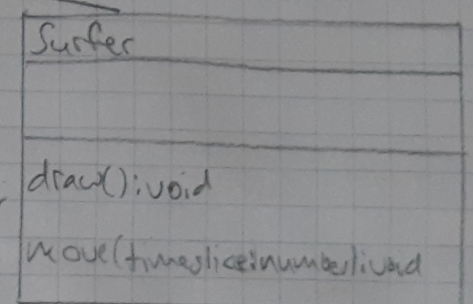 Surfer
draw():void
move(timeslice:number):void